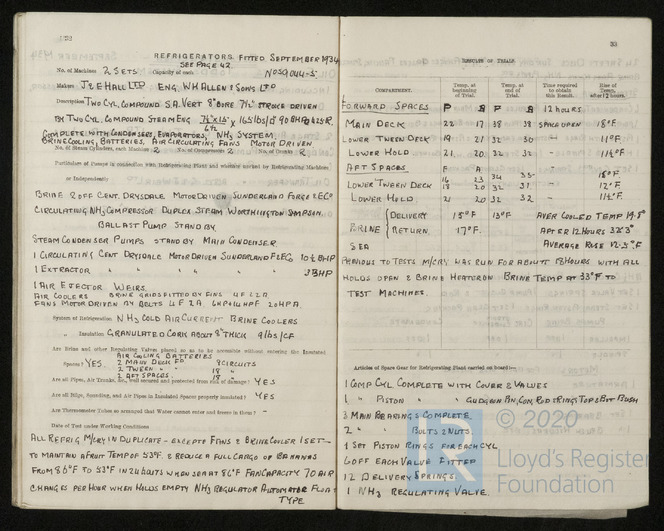 REFRIGERATORS. FITTED SEPTEMBER 1934
SEE PAGE 42.
No. of Machines 2 SETS Capacity of each
Makers J & E HALL LTD ENG. W.H. ALLEN & SONS LTD
Description TWO CYL. COMPOUND S.A. VERT 8" BORE 7½" STROKE DRIVEN
BY TWO CYL. COMPOUND STEAM ENG
COMPLETE WITH CONDENSERS, EVAPORATORS, NH3 SYSTEM.
BRINE COOLING, BATTERIES, AIR CIRCULATING FANS MOTOR DRIVEN
No. of Steam Cylinders, each Machine 2 No. of Compressors 2 No. of Cranks 2
Particulars of Pumps in connection with Refrigerating Plant and whether worked by Refrigerating Machines
or Independently:
BRINE 2 OFF CENT. DRYSDALE MOTOR DRIVEN SUNDERLAND FORGE & EC°
CIRCULATING NH3 COMPRESSOR DUPLEX STEAM WORTHINGTON SIMPSON.
BALLAST PUMP STAND BY.
STEAM CONDENSER PUMPS STAND BY MAIN CONDENSER.
1 CIRCULATING CENT DRYSDALE MOTOR DRIVEN SUNDERLAND F & EC 10½ BHP
1 EXTRACTOR " " " " " 3 BHP
1 AIR EJECTOR WEIRS.
AIR COOLERS BRINE GRIDS FITTED BY FINS 4F 2A.
FANS MOTOR DRIVEN BY BELTS 4F 2A.
System of Refrigeration NH3 COLD AIR CURRENT BRINE COOLERS
" Insulation GRANULATED CORK ABOUT 8" THICK 9 lbs/CF
Are Brine and other Regulating Valves placed so as to be accessible without entering the Insulated
AIR COOLING BATTERIES
Spaces? YES. 2 MAIN DECK FD 9 CIRCUITS
2 TWEEN " " 18 "
2 AFT SPACES. 18 "
Are all Pipes, Air Trunks, &c., well secured and protected from risk of damage? YES
Are all Bilge, Sounding, and Air Pipes in Insulated Spaces properly insulated? YES
Are Thermometer Tubes so arranged that Water cannot enter and freeze in them? -
Date of Test under Working Conditions
ALL REFRIG M/CRY IN DUPLICATE - EXCEPT FANS & BRINE COOLER 1 SET -
TO MAINTAIN A FRUIT TEMP OF 53°F. & REDUCE A FULL CARGO OF BANANAS
FROM 86°F TO 53°F IN 24 HOURS WHEN SEA AT 86°F FAN CAPACITY 70 AIR
CHANGES PER HOUR WHEN HOLDS EMPTY NH3 REGULATOR AUTOMATIC FLOAT
TYPE
33
RESULTS OF TRIALS
COMPARTMENT. Temp. at beginning of Trial. Temp. at end of Trial. Time required to obtain this Result. Rise of Temp. after 12 hours.
FORWARD SPACES P S P S 12 hours
MAIN DECK 22 17 38 38 SPACE OPEN 18°F
LOWER TWEEN DECK 19 21 32 30 - 11°F
LOWER HOLD 21 20 32 32 - 11½°F
AFT SPACES F A
16 23 34 35 - 15°F
LOWER TWEEN DECK 18 20 32 31 - 12°F
LOWER HOLD 21 20 32 32 - 11½°F
BRINE {DELIVERY 15°F 13°F AVER COOLED TEMP 19.8°
RETURN. 17°F. AFTER 12 HOURS 32.3°
SEA AVERAGE RISE 12.5°F
PREVIOUS TO TESTS M/CRY WAS RUN FOR ABOUT 18 HOURS WITH ALL
HOLDS OPEN & BRINE HEATER ON BRINE TEMP AT 33°F TO
TEST MACHINES.
Articles of Spare Gear for Refrigerating Plant carried on board:—
1 COMP CYL COMPLETE WITH COVER & VALVES
1 " PISTON " GUDGEON PIN, CON, ROD & RINGS TOP & BOT BUSH
3 MAIN BEARINGS COMPLETE
2 " " BOLTS & NUTS
1 SET PISTON RINGS FOR EACH CYL
6 OFF EACH VALVE FITTED
12 DELIVERY SPRINGS.
1 NH3 REGULATING VALVE.
© 2020
Lloyd's Register
Foundation